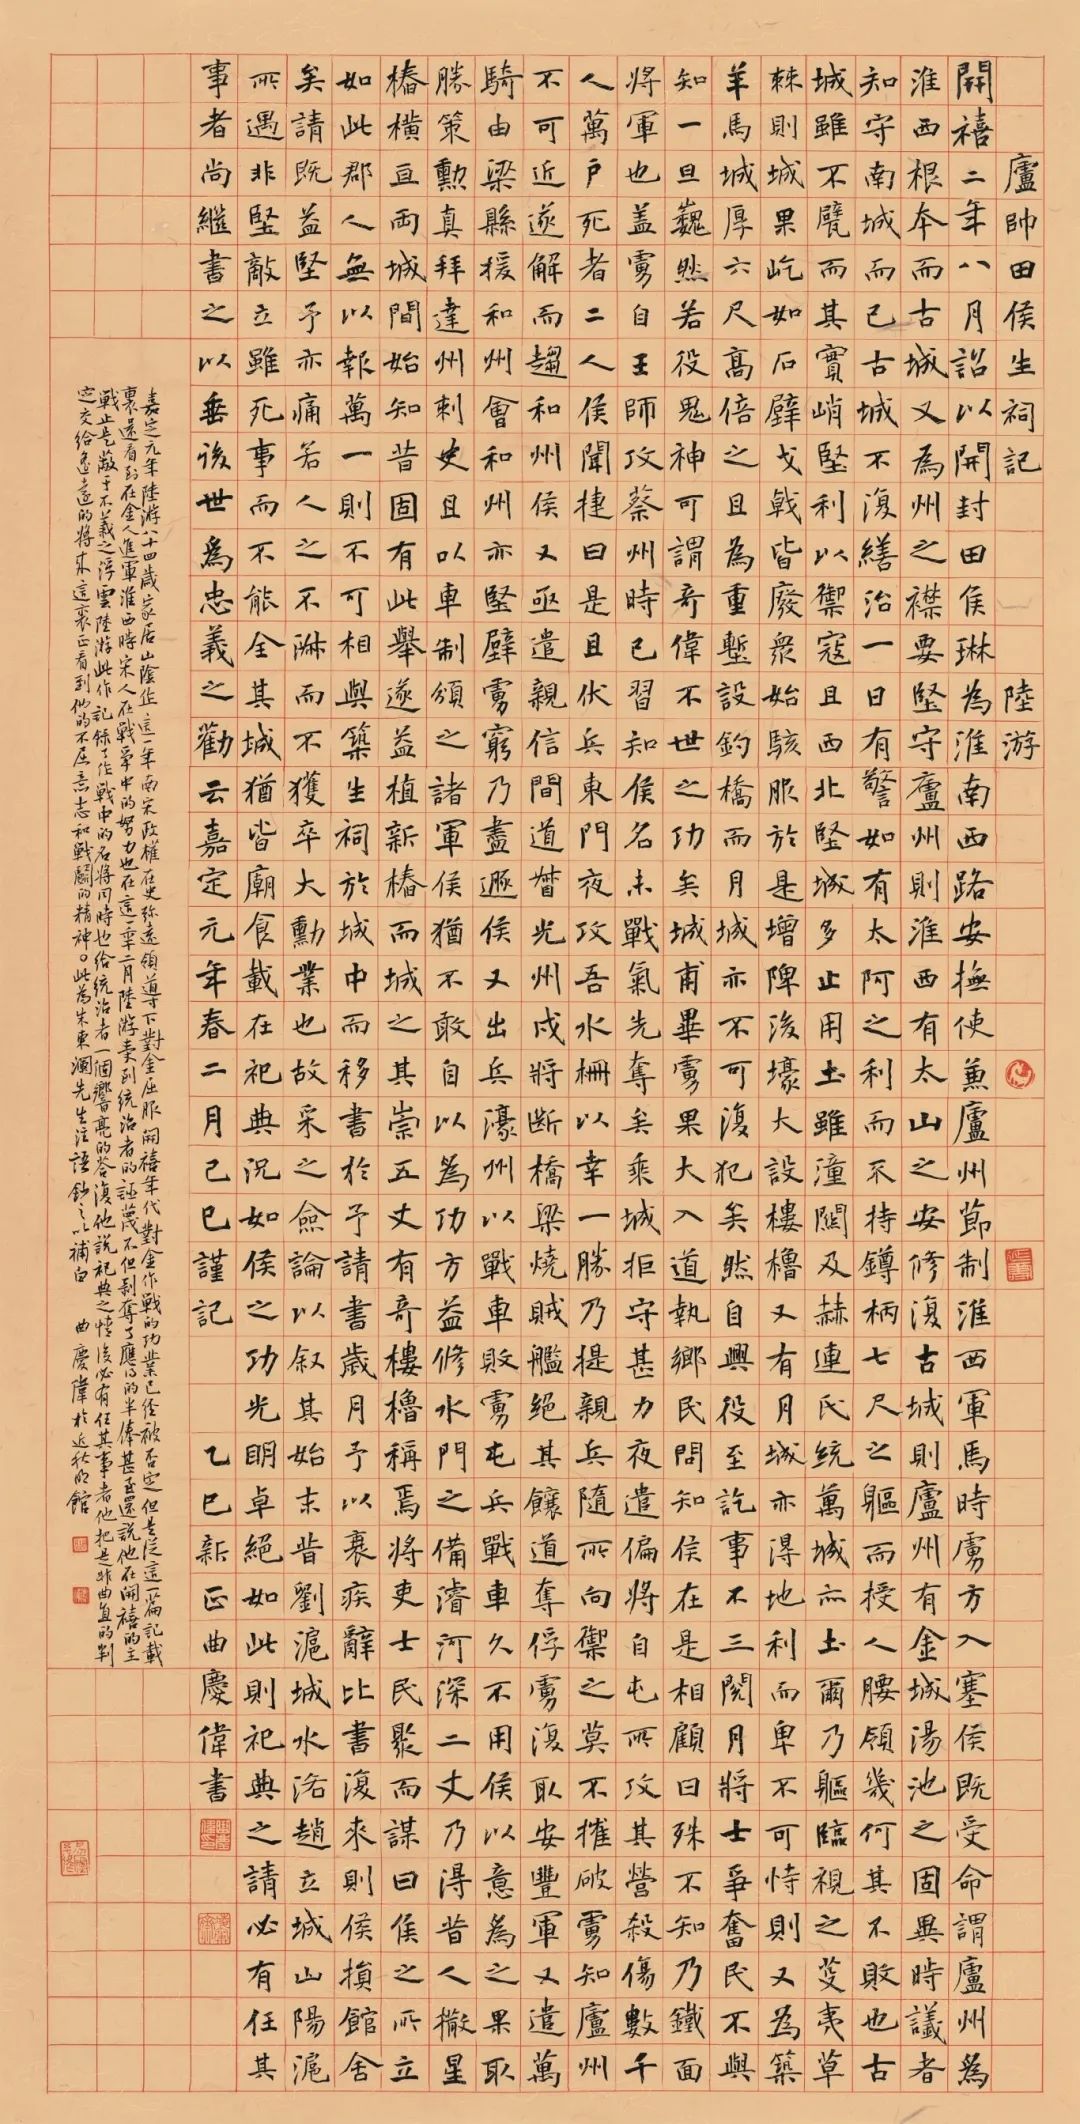 廬帥田侯生祠記 陸游
開禧二年八月詔以開封田侯琳為淮南西路安撫使兼廬州節制淮西軍馬時虜方入塞侯既受命謂廬州為
淮西根本而古城又為州之襟要堅守廬州則淮西有太山之安修復古城則廬州有金城湯池之固異時議者
知守南城而已古城不復繕治一日有警如有太阿之利而不持鐏柄七尺之軀而授人腰領幾何其不敗也古
城雖不甓而其實峭堅利以禦寇且西北堅城多止用土雖潼關及赫連氏統萬城亦土爾乃軀臨視之芟夷草
棘則城果屹如石壁戈戟皆廢眾始駭服於是增陴浚壕大設樓櫓又有月城亦得地利而卑不可恃則又為築
羊馬城厚六尺高倍之且為重塹設釣橋而月城亦不可復犯矣然自興役至訖事不三閱月將士爭奮民不與
知一旦巍然若役鬼神可謂奇偉不世之功矣城甫畢虜果大入道執鄉民問知侯在是相顧曰殊不知乃鐵面
將軍也盖虜自王師攻蔡州時已習知侯名未戰氣先奪矣乘城拒守甚力夜遣偏將自屯所攻其營殺傷數千
人萬户死者二人侯聞捷曰是且伏兵東門夜攻吾水柵以幸一勝乃提親兵隨所向禦之莫不摧破虜知廬州
不可近遂解而趨和州侯又亟遣親信間道督光州戍將斷橋梁燒賊艦絕其饟道奪俘虜復取安豐軍又遣萬
騎由梁縣援和州會和州亦堅壁虜窮乃盡遯侯又出兵濠州以戰車敗虜屯兵戰車久不用侯以意為之果取
勝策勳真拜達州刺史且以車制頒之諸軍侯猶不敢自以為功方益修水門之備濬河深二丈乃得昔人撒星
樁橫亘両城間始知昔固有此舉遂益植新樁而城之其崇五丈有奇樓櫓稱焉將吏士民聚而謀曰侯之所立
如此郡人無以報萬一則不可相與築生祠於城中而移書於予請書歲月予以衰疾辭比書復來則侯損館舍
矣請既益堅予亦痛若人之不淋而不獲卒大勳業也故采之僉論以叙其始末昔劉滬城水洛趙立城山陽滬
所遇非堅敵立雖死事而不能全其城猶皆廟食載在祀典況如侯之功光明卓絕如此則祀典之請必有任其
事者尚繼書之以垂後世為忠義之勸云嘉定元年春二月己巳謹記 乙巳新正曲慶偉書
嘉定元年陸游八十四歲家居山陰這一年南宋政權在史弥遠領導下對金屈服開禧年代對金作戰的功業已经被否定但是從這一篇記載
裏還看到在金人進軍淮西時宋人在戰爭中的努力也在這一年二月陸游受到統治者的誣蔑不但剥奪了應得的半俸甚至還說他在開禧的主
戰止是敵于不義之浮雲陸游此作記錄了作戰中的名將同時也给统治者一個響亮的答復他說祀典之情後必有任其事者他把是非曲直的判
定交给遙遠的將來這裏正看到他的不屈意志和戰鬬的精神 此為朱東潤先生注語 鈔之以補白 曲慶偉於近秋明館